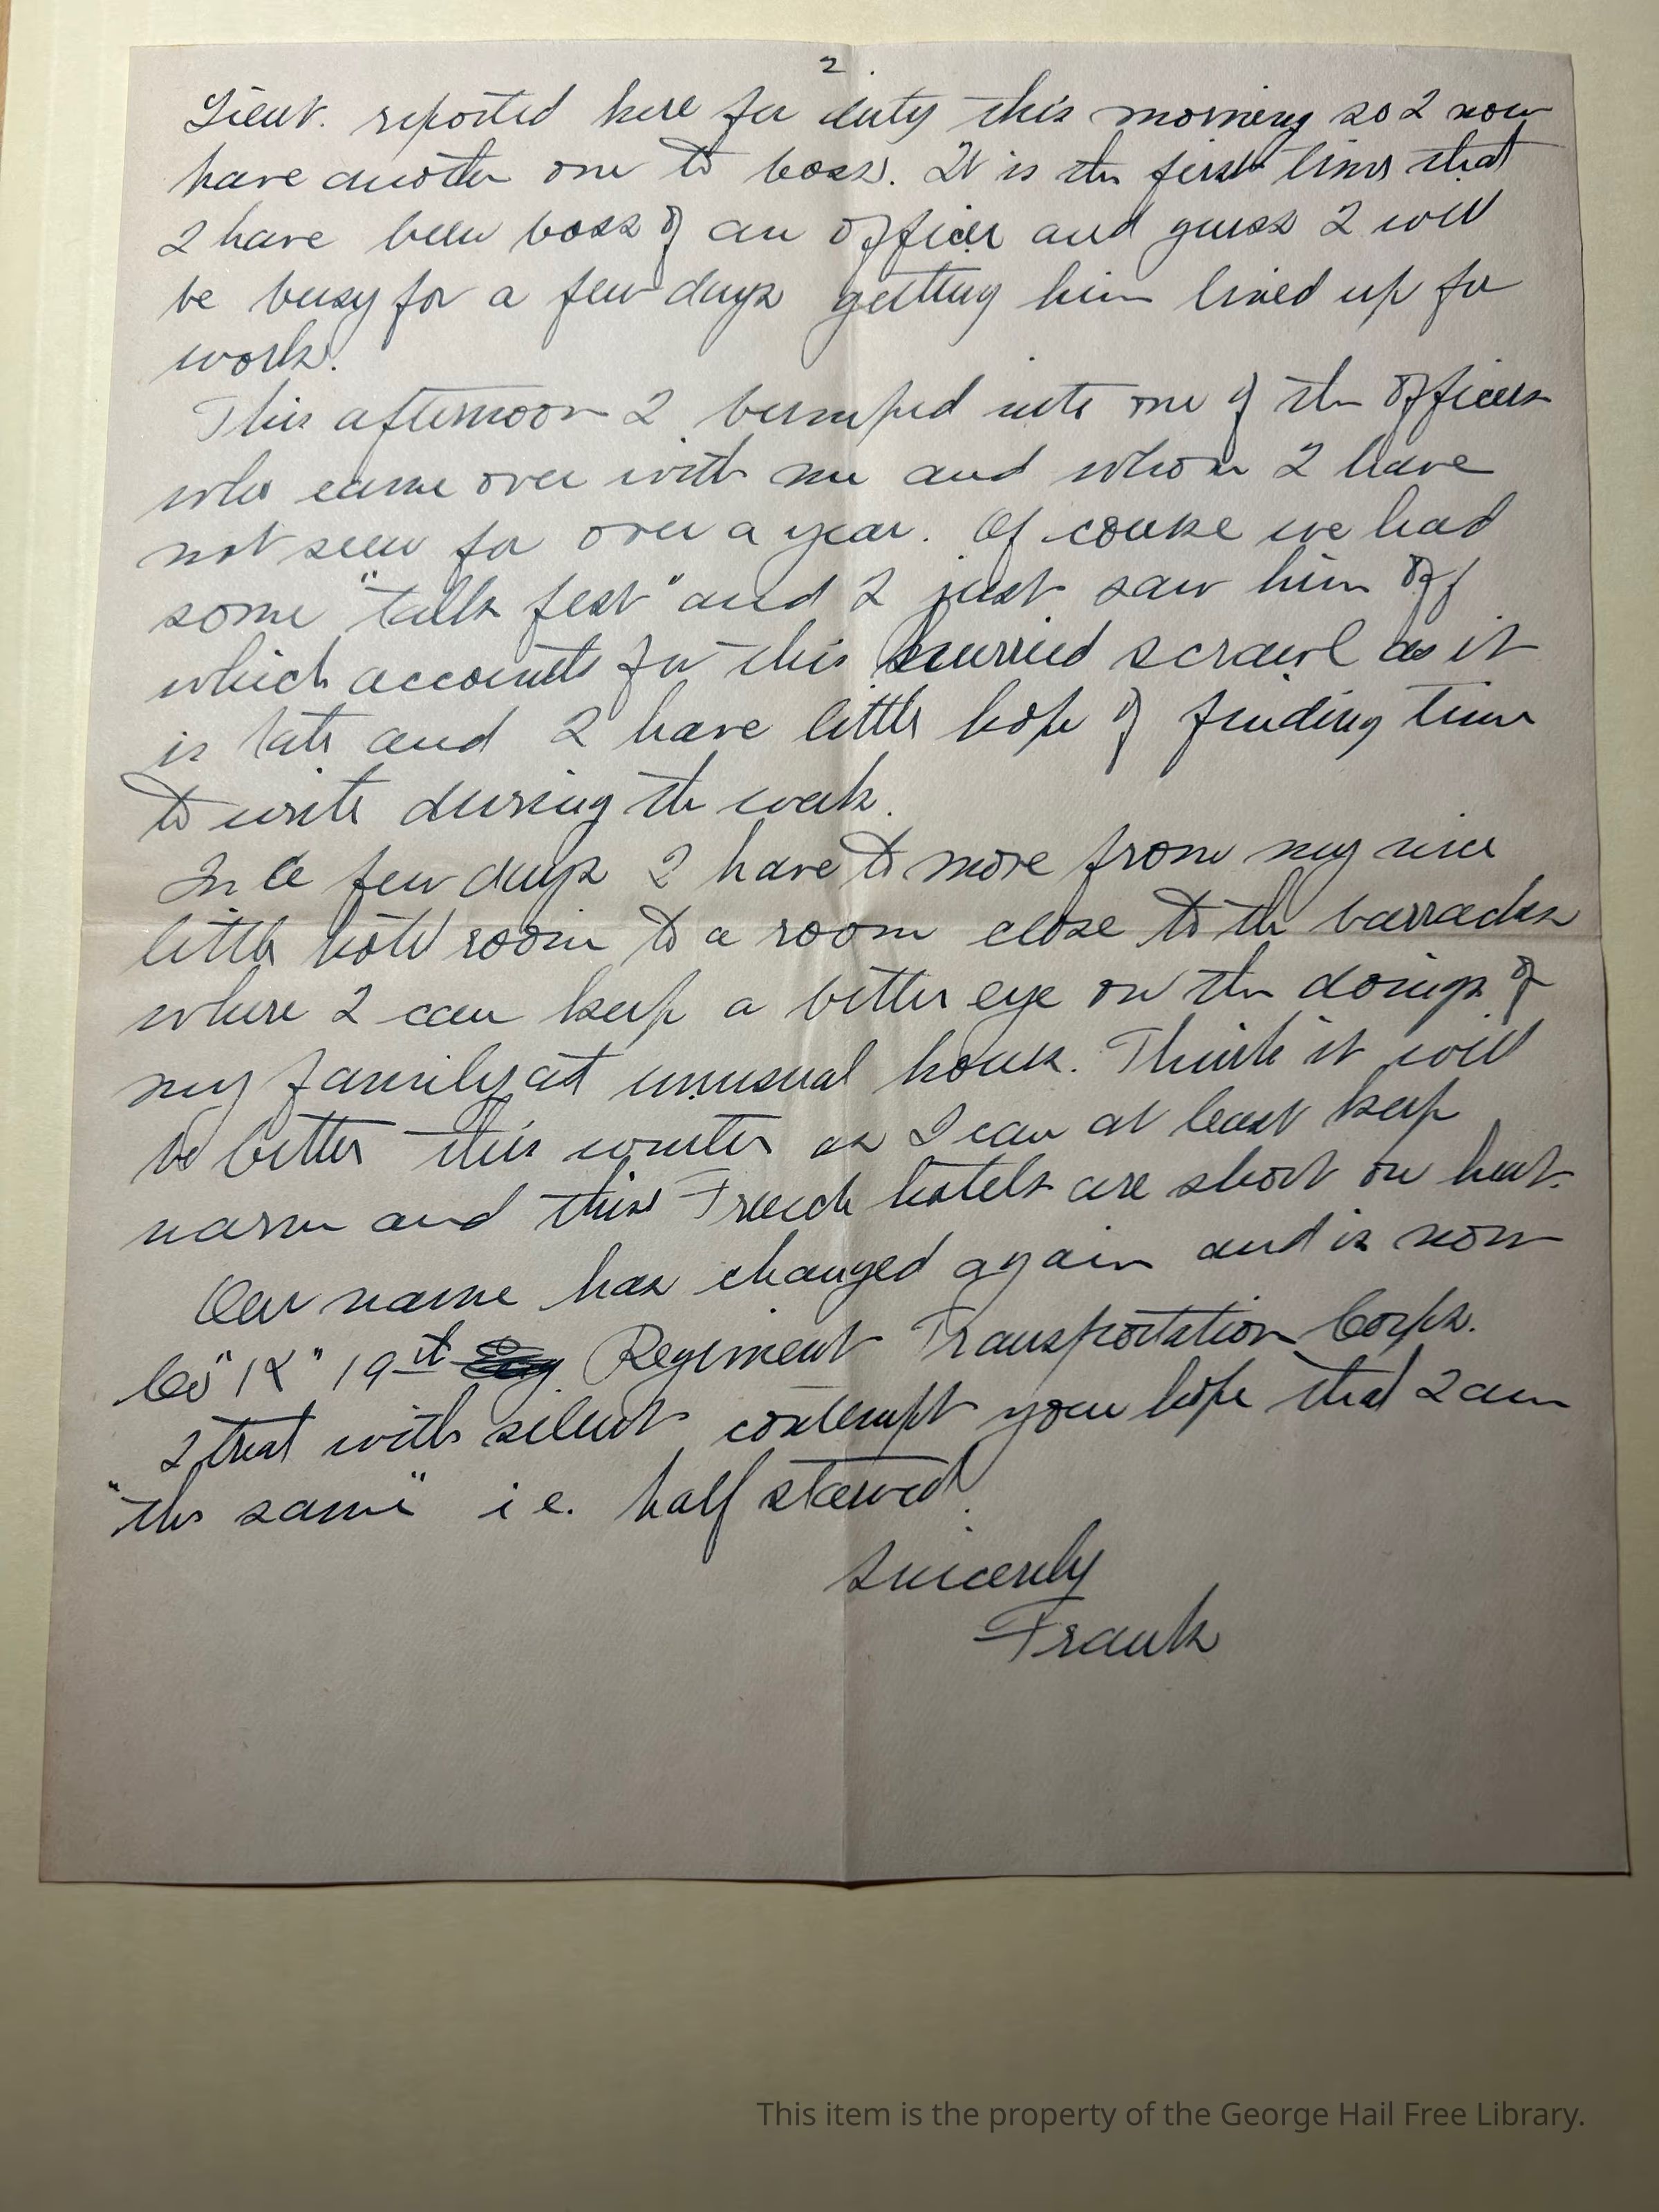 2.
Lieut. reported here for duty this morning so I now
have another one to boss. It is the first time that
I have been boss of an officer and guess I will
be busy for a few days getting him lined up for
work.
This afternoon I bumped into one of the officers
who came over with me and whom I have
not seen for over a year. Of course we had
some "talk fest" and I just saw him off
which accounts for this hurried scrawl as it
is late and I have little hope of finding time
to write during the week.
In a few days I have to move from my nice
little hotel room to a room close to the barracks
where I can keep a better eye on the doings of
my family at unusual hours. Think it will
be better this winter as I can at least keep
warm and this French hotels are short on heat.
Our name has changed again and is now
Co "K" 19th Regiment Transportation Corps.
I treat with silent contempt your hope that I am
"the same" i e. half starved.
Sincerely
Frank
This item is the property of the George Hail Free Library.